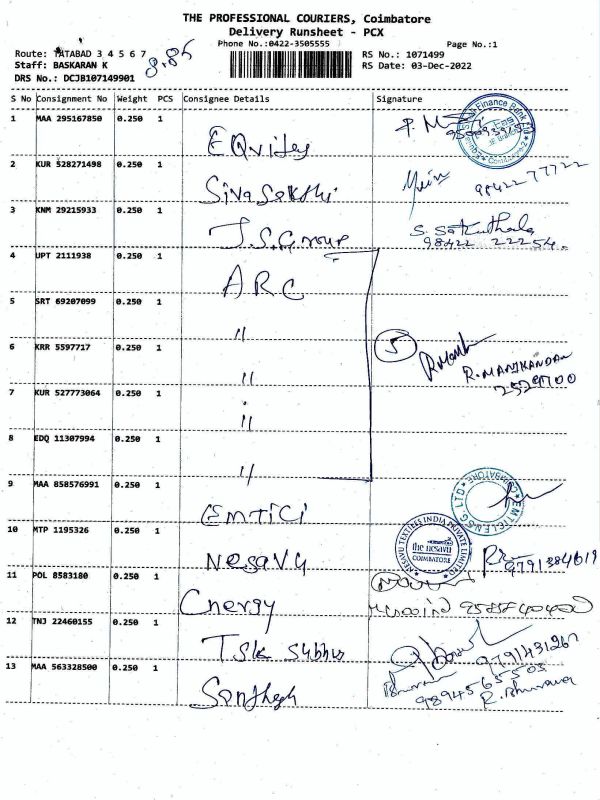 THE PROFESSIONAL COURIERS, Coimbatore
Delivery Runsheet - PCX
Phone No.:0422-3505555 Page No.:1
Route: TATABAD 3 4 5 6 7 RS No.: 1071499
Staff: BASKARAN K 8.85 RS Date: 03-Dec-2022
DRS No.: DCJB107149901
S No Consignment No Weight PCS Consignee Details Signature
1 MAA 295167850 0.250 1 EQuitey
2 KUR 528271498 0.250 1 Siva Sakthi 98422 77722
3 KNM 29215933 0.250 1 J.S.Group 98422 22254.
4 UPT 2111938 0.250 1 ARC
5 SRT 69207099 0.250 1 "
6 KRR 5597717 0.250 1 " 5 R.MANIKANDAN
2529700
7 KUR 527773064 0.250 1 "
8 EDQ 11307994 0.250 1 "
9 MAA 858576991 0.250 1 EMTiCi
10 MTP 1195326 0.250 1 Nesavu NESAVU TEXTILES INDIA PRIVATE LIMITED the nesavu COIMBATORE 9791384619
11 POL 8583180 0.250 1 Cnergy
12 TNJ 22460155 0.250 1 Tsk Subhu 9791431267
13 MAA 563328500 0.250 1 Santhosh 9894565503
R. Bhuvana